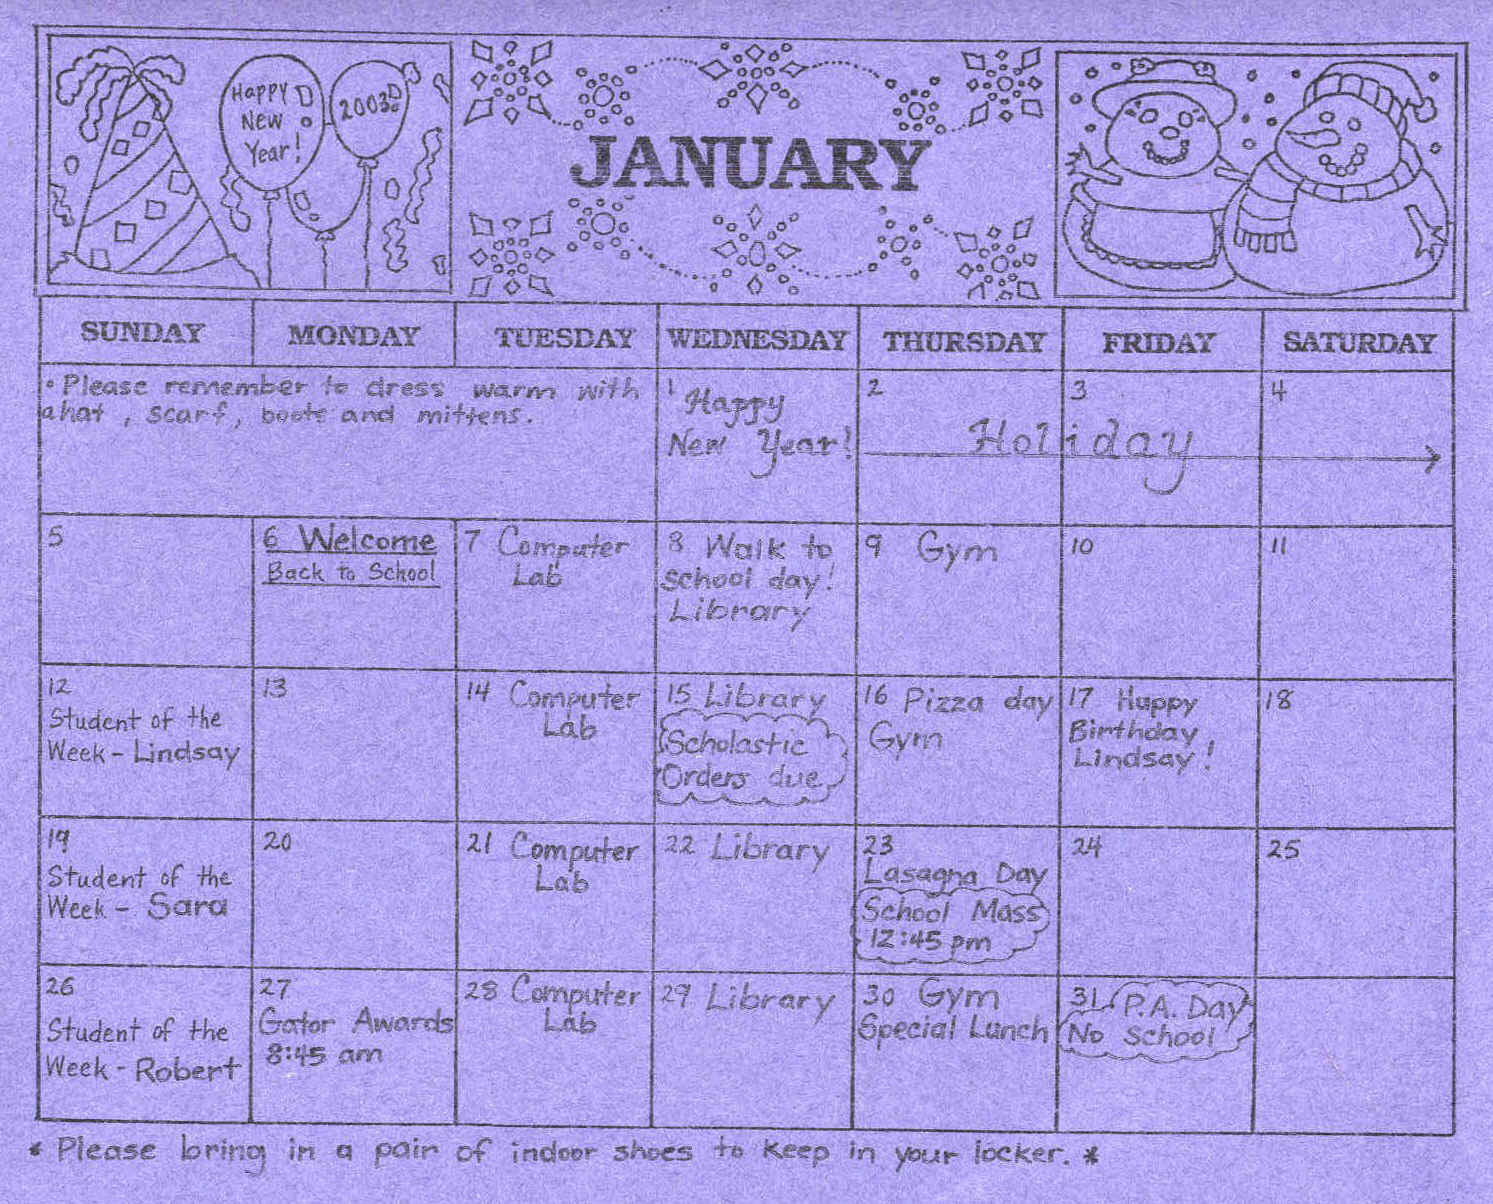 Happy
New
Year!
2003
JANUARY
SUNDAY MONDAY TUESDAY WEDNESDAY THURSDAY FRIDAY SATURDAY
• Please remember to dress warm with
a hat, scarf, boots and mittens.
1 Happy
New Year!
2 3 4
Holiday
5
6 Welcome
Back to School
7 Computer
Lab
8 Walk to
school day!
Library
9 Gym
10
11
12
Student of the
Week - Lindsay
13
14 Computer
Lab
15 Library
Scholastic
Orders due
16 Pizza day
Gym
17 Happy
Birthday
Lindsay!
18
19
Student of the
Week - Sara
20
21 Computer
Lab
22 Library
23
Lasagna Day
School Mass
12:45 pm
24
25
26
Student of the
Week - Robert
27
Gator Awards
8:45 am
28 Computer
Lab
29 Library
30 Gym
Special Lunch
31 P.A. Day
No School
* Please bring in a pair of indoor shoes to keep in your locker. *